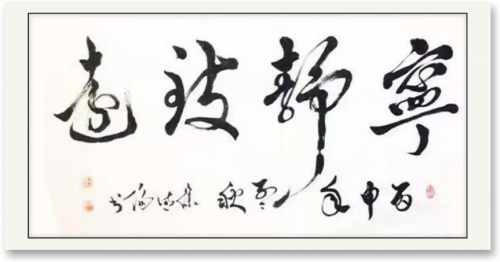 寧靜致遠
丙申年 秋